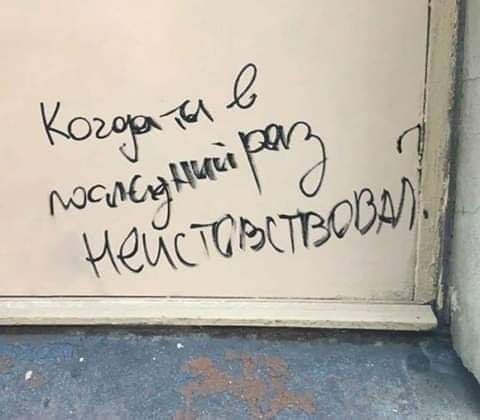 Когда ты в
последний раз
неистовствовал?